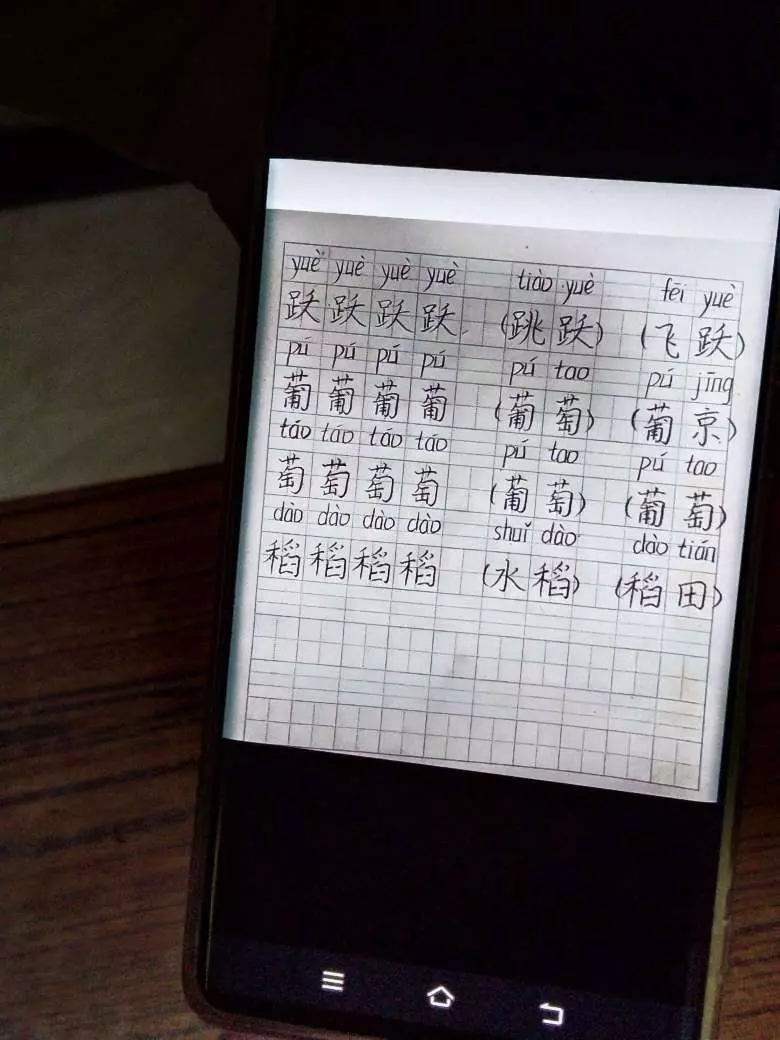 yuè yuè yuè yuè tiào yuè fēi yuè
跃 跃 跃 跃 (跳 跃) (飞 跃)
pú pú pú pú pú tao pú jīng
葡 葡 葡 葡 (葡 萄) (葡 京)
táo táo táo táo pú tao pú tao
萄 萄 萄 萄 (葡 萄) (葡 萄)
dào dào dào dào shuǐ dào dào tián
稻 稻 稻 稻 (水 稻) (稻 田)